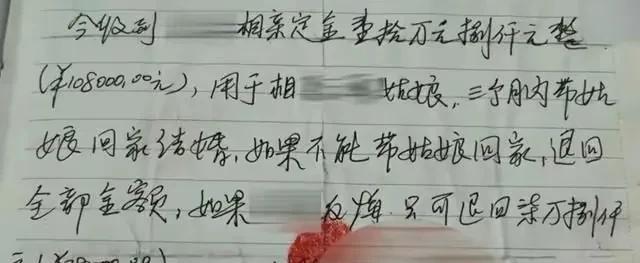 今收到 相亲定金壹拾万元捌仟元整
(¥108000.00元), 用于相 姑娘, 三个月内带姑
娘回家结婚, 如果不能带姑娘回家, 退回
全部金额, 如果 反悔 只可退回柒万捌仟